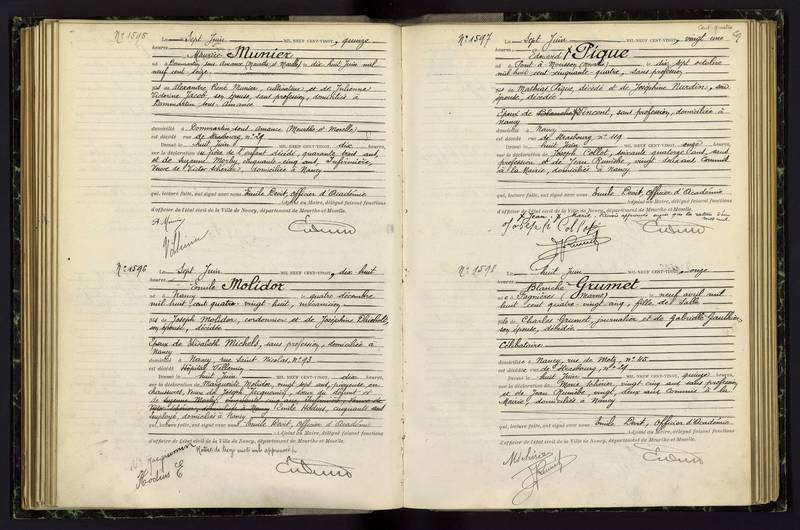 N° 1595 Le Sept Juin MIL NEUF CENT-VINGT, quinze
heures
Maurice Munier
né à Dommartin sous Amance (Meurthe et Moselle) le dix huit Juin mil
neuf cent seize
fils de Alexandre René Munier, cultivateur et de Julienne
Victorine Jacob, son épouse, sans profession, domiciliés à
Dommartin sous Amance
domicilié à Dommartin sous Amance (Meurthe et Moselle)
est décédé rue de Strasbourg n° 29
Dressé le huit Juin MIL NEUF CENT-VINGT, dix heures
sur la déclaration du père de l'enfant décédé, quarante trois ans,
et de Suzanne Morley, cinquante cinq ans, Infirmière,
Veuve de Victor domiciliés à Nancy
qui, lecture faite, ont signé avec nous Emile Devit, Officier d'Académie
Adjoint au Maire, délégué faisant fonctions
d'officier de l'état civil de la Ville de Nancy, département de Meurthe et Moselle.
N° 1596 Le Sept Juin MIL NEUF CENT-VINGT, dix huit
heures
Emile Molidor
né à Nancy le quatre décembre
mil huit cent quatre-vingt-huit, mécanicien
fils de Joseph Molidor, cordonnier et de Joséphine
son épouse, décédée
Epoux de Elisabeth Michels, sans profession, domiciliée à
Nancy
domicilié à Nancy, rue Saint Nicolas, N° 93
est décédé Hôpital Villemin
Dressé le huit Juin MIL NEUF CENT-VINGT, dix heures
sur la déclaration de Marguerite Molidor, vingt sept ans, piqueuse en
chaussures, Veuve de Joseph Jacquemin, sœur du défunt et
de Suzanne Morley, cinquante cinq ans, Infirmière, Veuve de
Victor domiciliés à Nancy (Emile Hodius, cinquante ans
employé, domiciliés à Nancy
qui, lecture faite, ont signé avec nous Emile Devit, Officier d'Académie
Adjoint au Maire, délégué faisant fonctions
d'officier de l'état civil de la Ville de Nancy, département de Meurthe et Moselle.
Jacquemin
Hodius E
N° 1597 Le Sept Juin MIL NEUF CENT-VINGT, vingt une
heures
Edmond Pique
né à Pont à Mousson (Meurthe) le dix sept octobre
mil huit cent cinquante-quatre, sans profession
fils de Mathias Pique, décédé et de Joséphine Nurdin, son
épouse, décédée
Epoux de Vincent, sans profession, domiciliée à
Nancy
domicilié à Nancy
est décédé rue de Strasbourg n° 119
Dressé le huit Juin MIL NEUF CENT-VINGT, onze heures
sur la déclaration de Joseph Collot, soixante quatorze ans, sans
profession et de Jean Rumèbe, vingt deux ans Commis
à la Mairie, domiciliés à Nancy
qui, lecture faite, ont signé avec nous Emile Devit, Officier d'Académie
Adjoint au Maire, délégué faisant fonctions
d'officier de l'état civil de la Ville de Nancy, département de Meurthe et Moselle.
Joseph Collot
N° 1598 Le huit Juin MIL NEUF CENT-VINGT, onze
heures
Blanche Grumet
née à Pagnières (Marne) le neuf avril mil
huit cent quatre-vingt cinq, fille de salle
fille de Charles Grumet journalier et de Gabrielle Gauthier,
son épouse, décédée
Célibataire
domiciliée à Nancy, rue de Metz, n° 45
est décédée rue de Strasbourg, n° 29
Dressé le huit Juin MIL NEUF CENT-VINGT, quinze heures
sur la déclaration de Marie vingt cinq ans sans profession
et de Jean Rumèbe, vingt deux ans Commis à la
Mairie, domiciliés à Nancy
qui, lecture faite, ont signé avec nous Emile Devit, Officier d'Académie
Adjoint au Maire, délégué faisant fonctions
d'officier de l'état civil de la Ville de Nancy, département de Meurthe et Moselle.